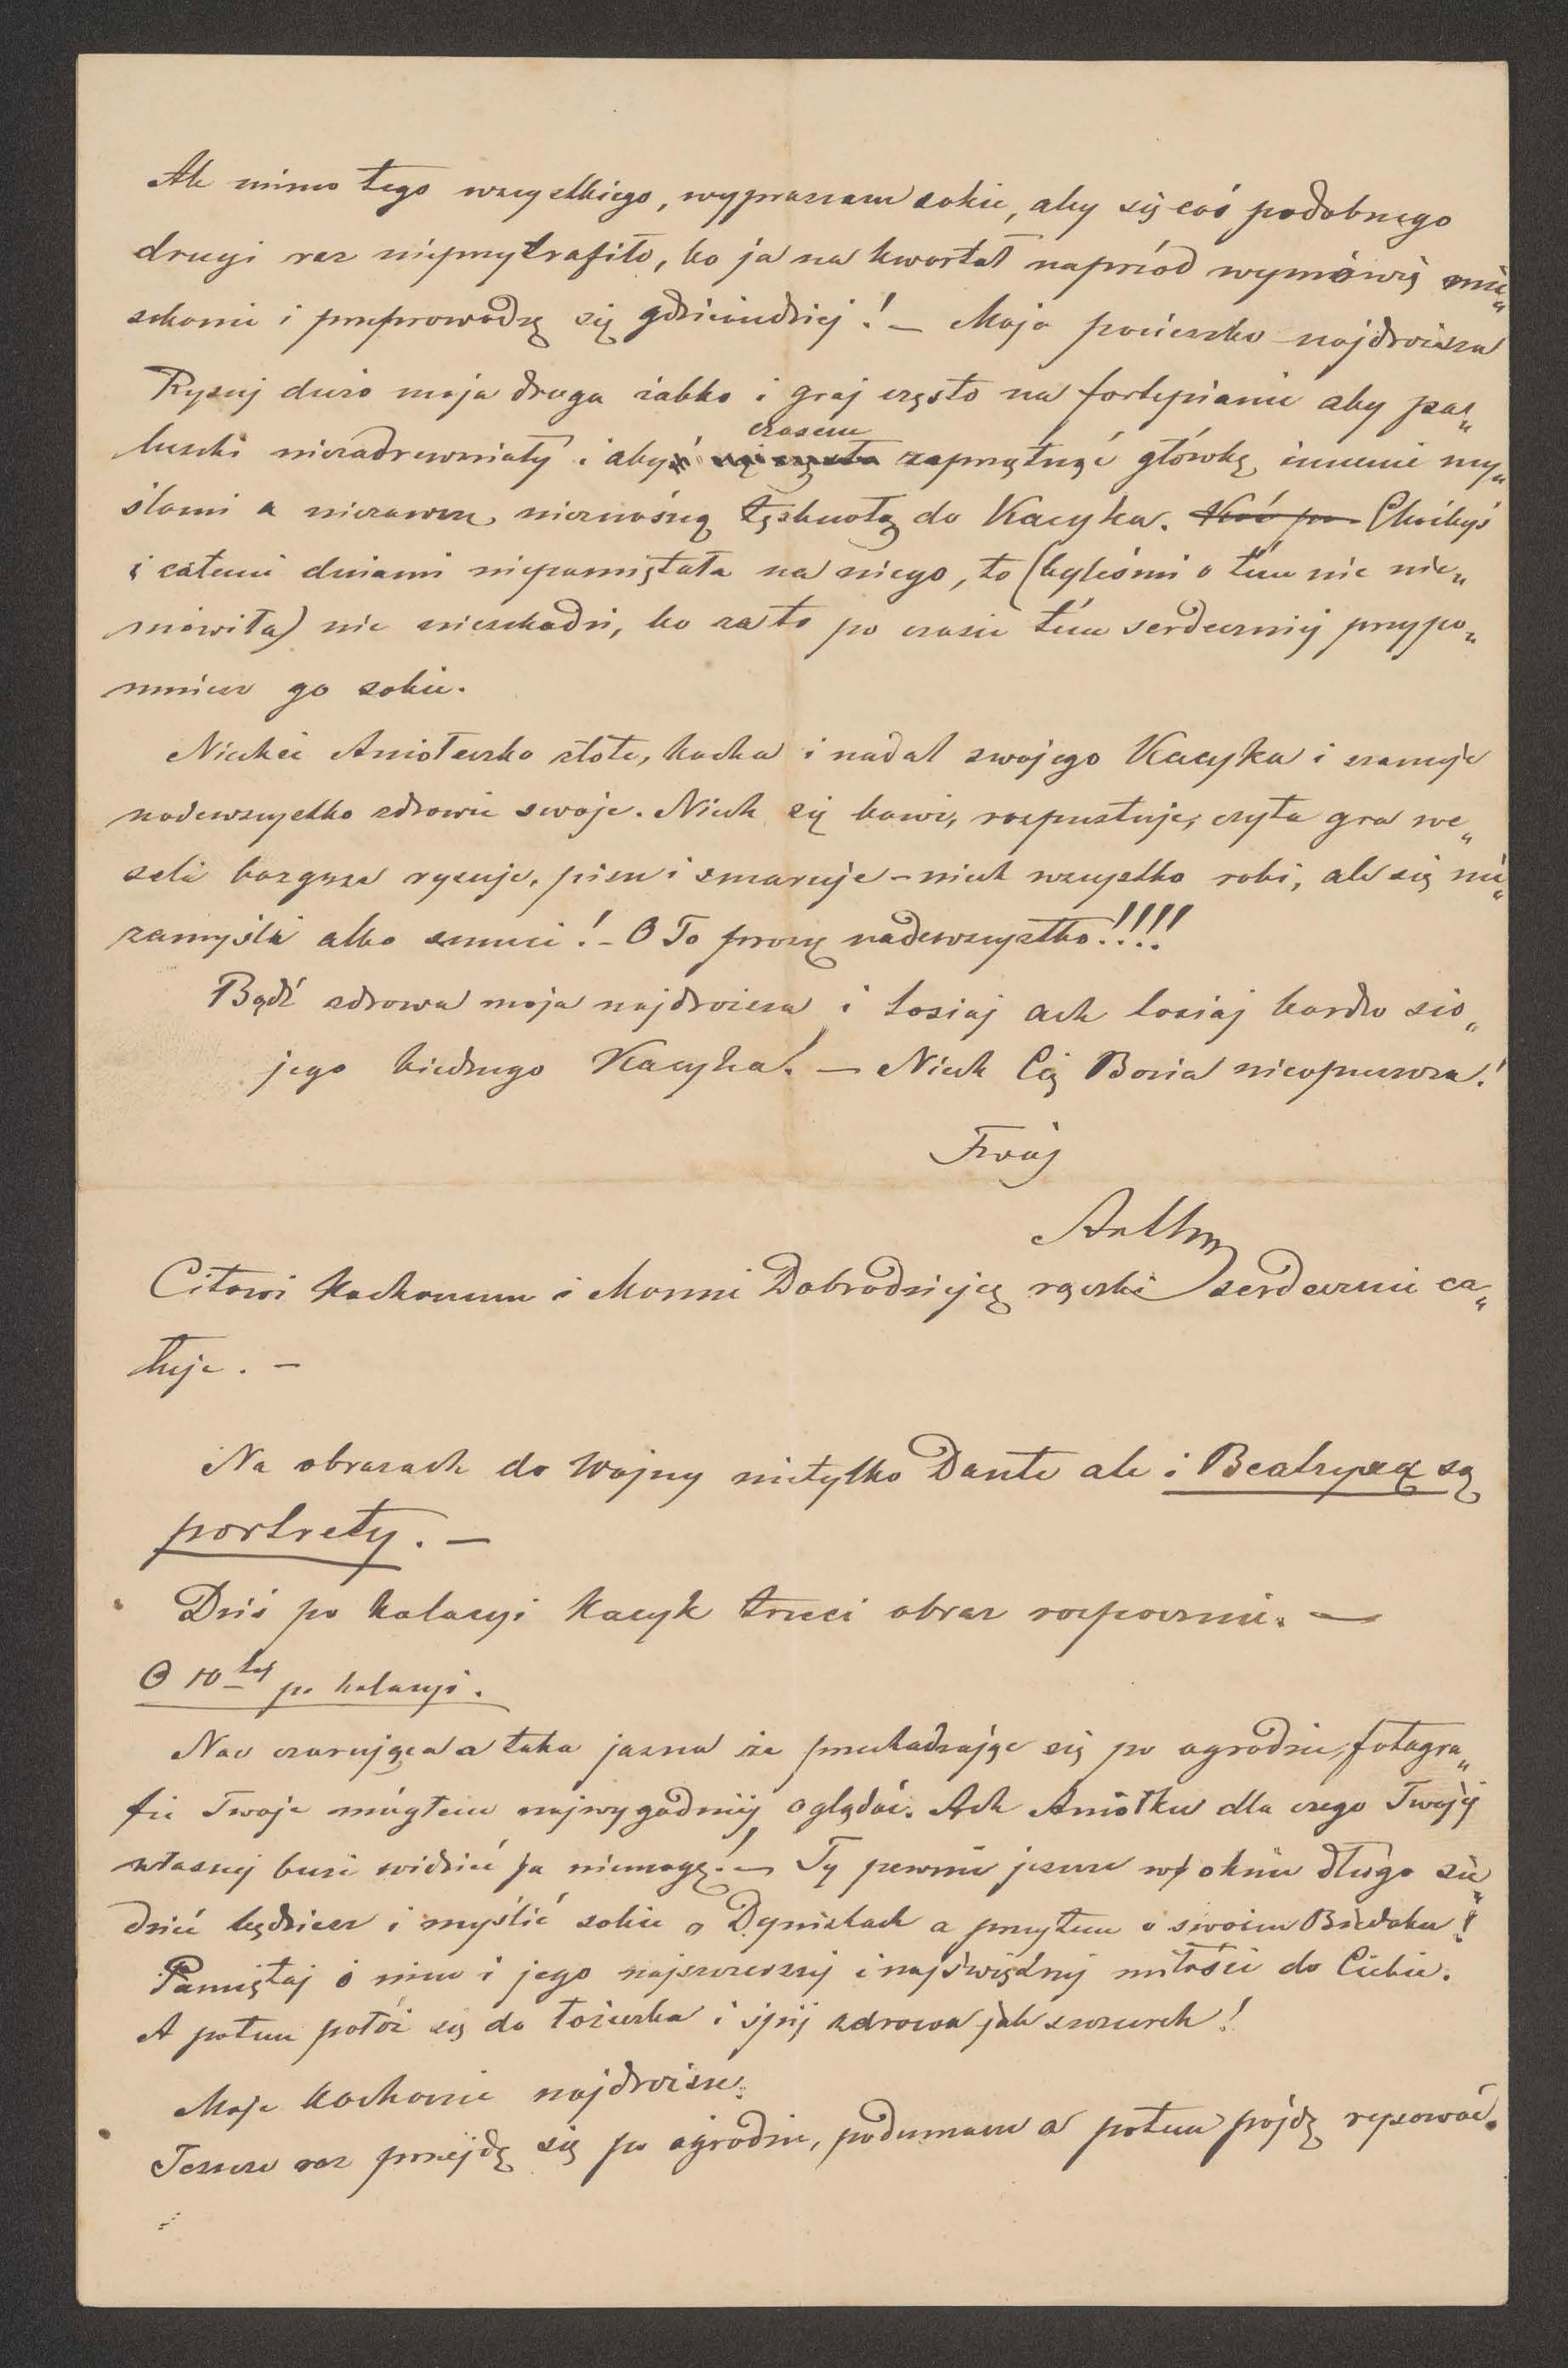 Ale mimo tego wszystkiego, wypraszam sobie, aby się coś podobnego
drugi raz nieprzytrafiło, bo ja na kwartał naprzód wymówię mie„
szkanie i przeprowadzę się gdzieindziej! — Moja pocieszko najdroższa
Rysuj dużo moja droga żabko i graj często na fortepianie aby pa„
luszki niezadrewniały i abyś czasem zaprzątnąć główkę innemi my„
ślami a niezawsze nieznośną tęsknotą do Kacyka. Choćbyś
i całemi dniami niepamiętała na niego, to (byleśmi o tém nic nie„
mówiła) nic nieszkodzi, bo za to po czasie tém serdeczniej przypo„
mnisz go sobie.
Niechże Aniołeczko złote, kocha i nadal swojego Kacyka i szanuje
nadewszystko zdrowie swoje. Niech się bawi, rozpustuje, czyta gra we„
seli bazgrze rysuje, pisze i smaruje – niech wszystko robi, ale się nie„
zamyśla albo smuci! – O To proszę nadewszystko!!!!
Bądź zdrowa moja najdroższa i losiaj ach losiaj bardzo sio„
jego biednego Kacyka! — Niech Cię Bozia nieopuszcza!
Twój
Arthur
Citowi Kochanemu i Mamie Dobrodziejcę rączki serdecznie ca„
łuje. —
Na obrazach do Wojny nietylko Dante ale i Beatryczę są
portrety. —
Dziś po kolacyi Kacyk trzeci obraz rozpocznie. —
O 10tej po kolacyi.
Noc czarująca a taka jasna że przechadzając się po ogrodzie, fotogra„
fie Twoje mógłem najwygodniej oglądać. Ach Aniołku dla czego Twojéj
własnej buzi widzieć ja niemogę! — Ty pewnie jeszcze w oknie długo sie„
dzieć będziesz i myślić sobie o Dyniskach a przytem o swoim Biedaku!
Pamiętaj o nim i jego najszczerszej i najświętszej miłości do Ciebie.
A potem połóż się do łóżeczka i śpij zdrowa jak szczurek!
Moje kochanie najdroższe.
Jeszcze raz przejdę się po ogrodzie, podumam a potem pójdę rysować.